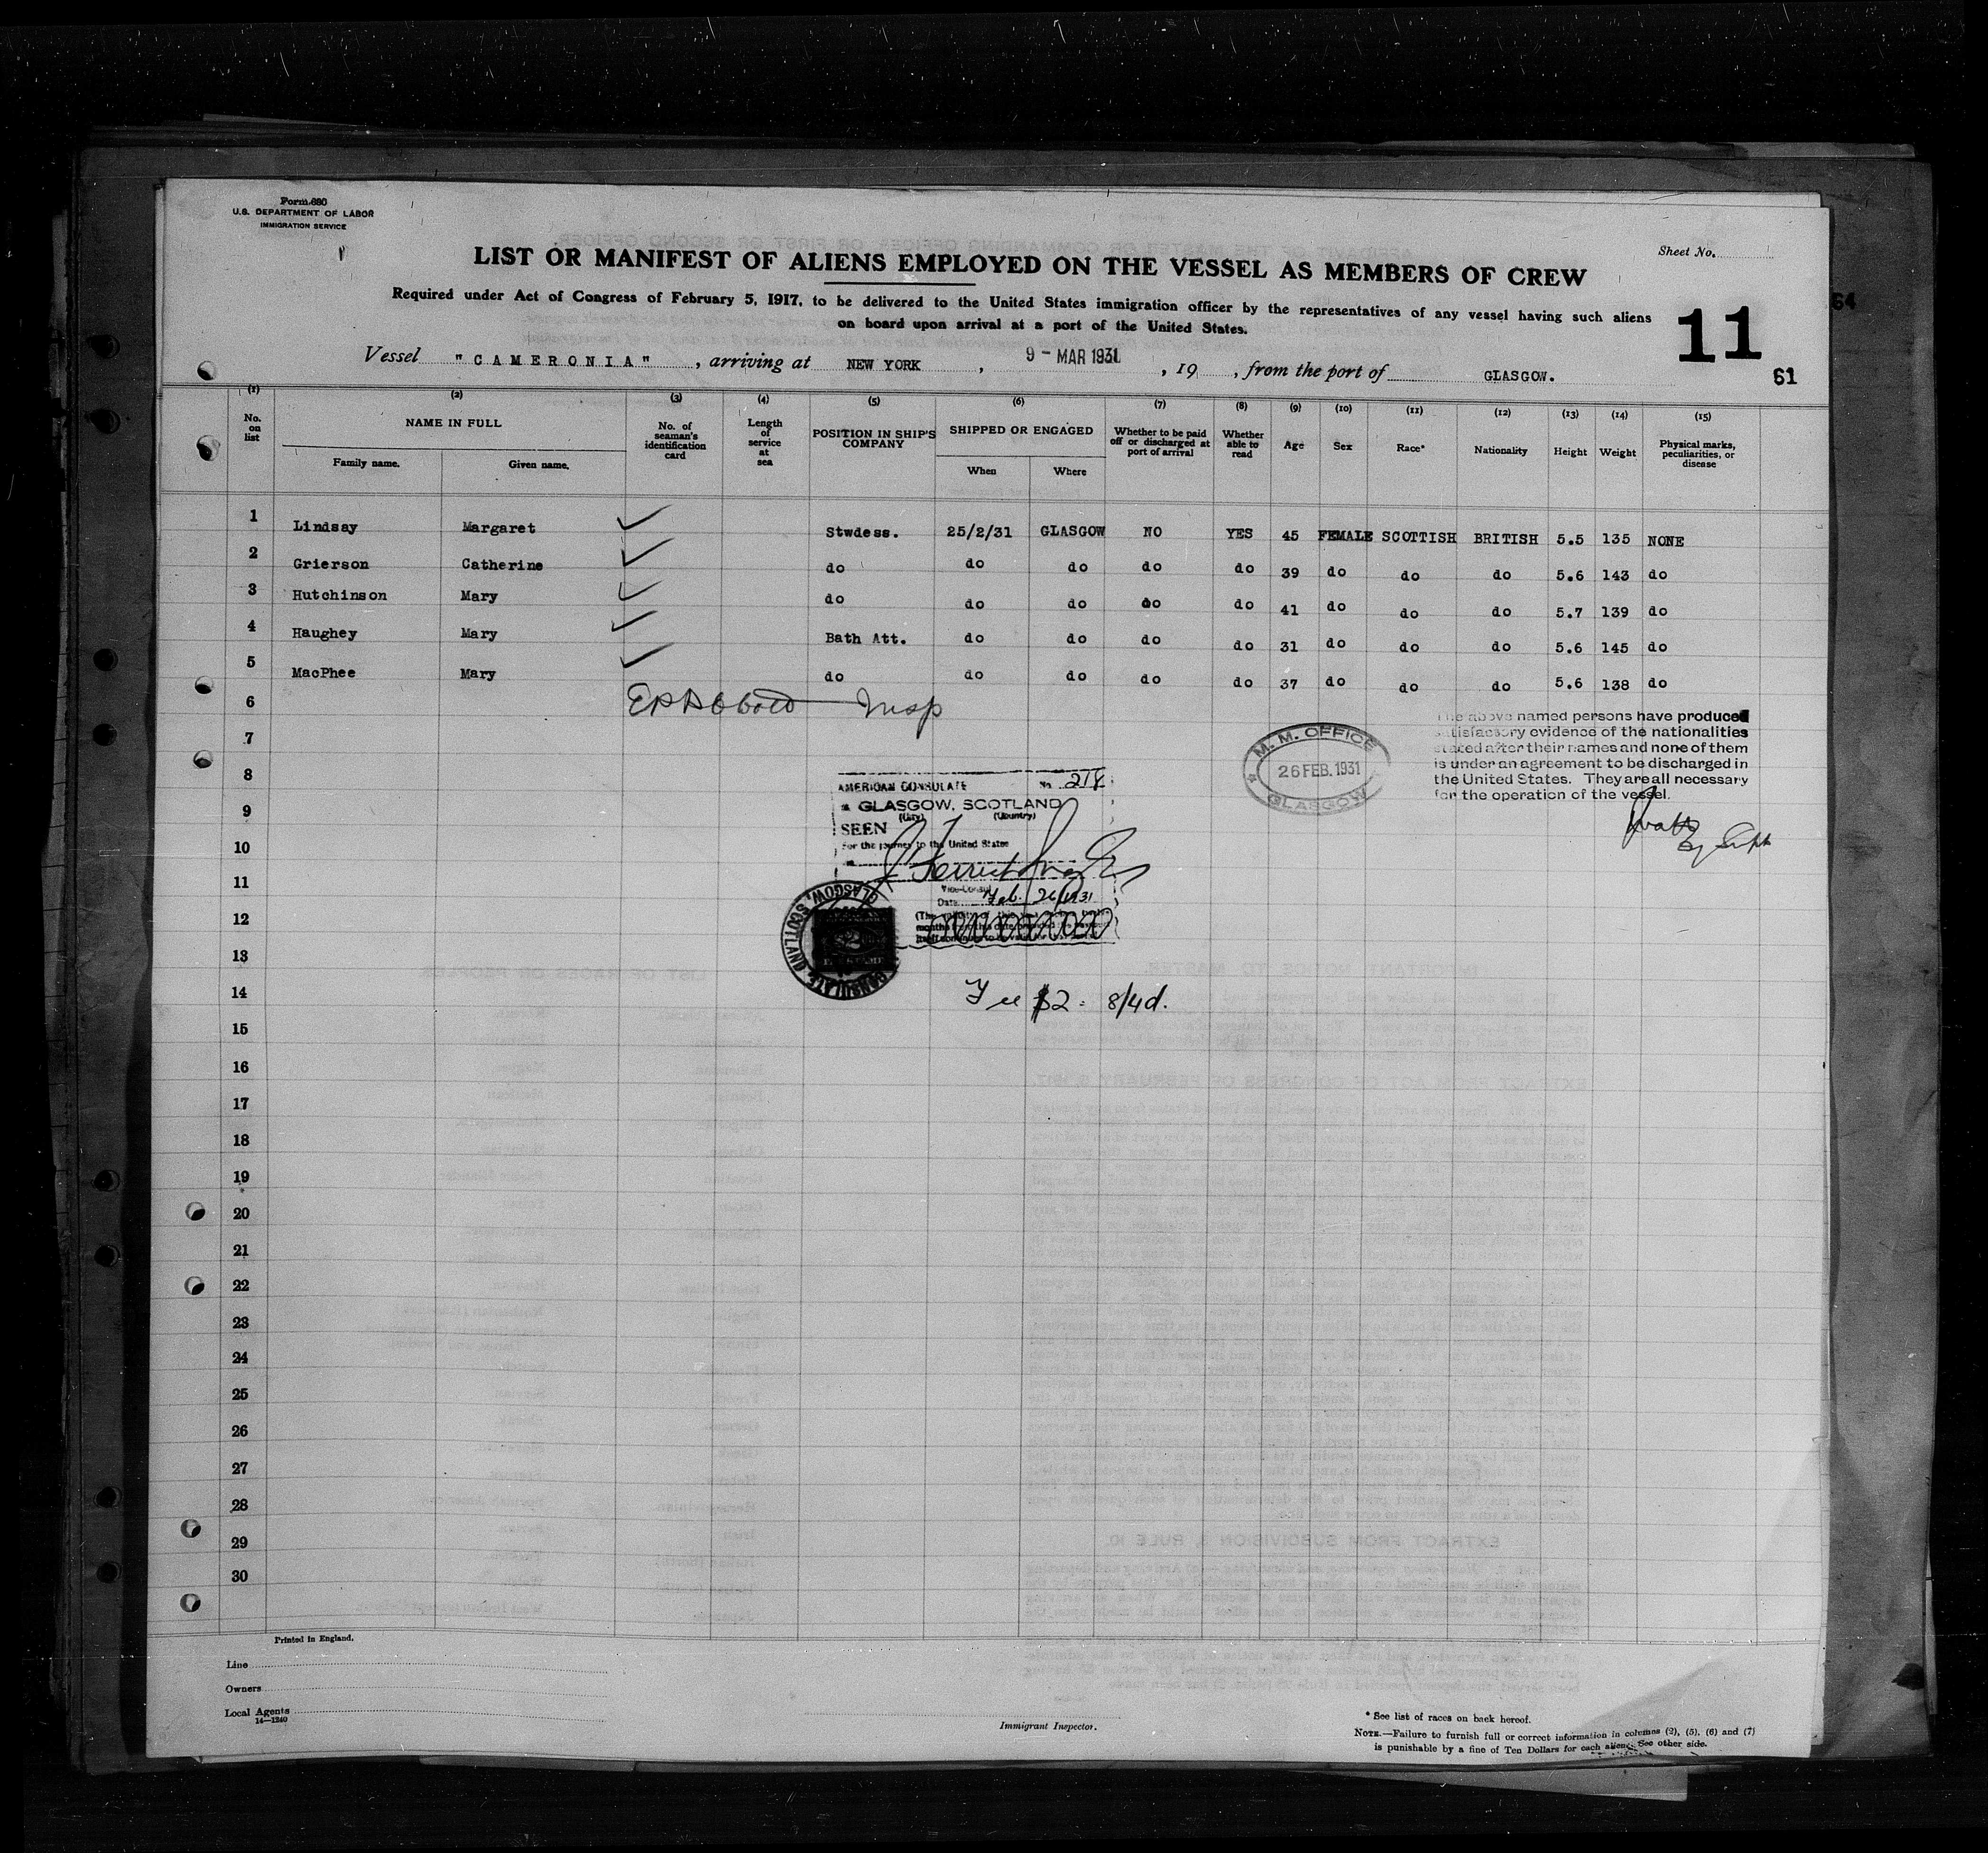 Form 680
U.S. DEPARTMENT OF LABOR
IMMIGRATION SERVICE
Sheet No.
LIST OR MANIFEST OF ALIENS EMPLOYED ON THE VESSEL AS MEMBERS OF CREW
Required under Act of Congress of February 5, 1917, to be delivered to the United States immigration officer by the representatives of any vessel having such aliens
on board upon arrival at a port of the United States.
11
64
61
Vessel "CAMERONIA", arriving at NEW YORK, 9 - MAR 1931, 19 , from the port of GLASGOW.
(1) (2) (3) (4) (5) (6) (7) (8) (9) (10) (11) (12) (13) (14) (15)
No. on list
NAME IN FULL
Family name. Given name.
No. of seaman's identification card
Length of service at sea
POSITION IN SHIP'S COMPANY
SHIPPED OR ENGAGED
When Where
Whether to be paid off or discharged at port of arrival
Whether able to read
Age
Sex
Race*
Nationality
Height
Weight
Physical marks, peculiarities, or disease
1 Lindsay Margaret ✓ Stwdess. 25/2/31 GLASGOW NO YES 45 FEMALE SCOTTISH BRITISH 5.5 135 NONE
2 Grierson Catherine ✓ do do do do do 39 do do do 5.6 143 do
3 Hutchinson Mary ✓ do do do do do 41 do do do 5.7 139 do
4 Haughey Mary ✓ Bath Att. do do do do 31 do do do 5.6 145 do
5 MacPhee Mary ✓ do do do do do 37 do do do 5.6 138 do
6 Insp
7
8
9
10
11
12
13
14
15
16
17
18
19
20
21
22
23
24
25
26
27
28
29
30
The above named persons have produced
satisfactory evidence of the nationalities
stated after their names and none of them
is under an agreement to be discharged in
the United States. They are all necessary
for the operation of the vessel.
M. M. OFFICE
26 FEB. 1931
GLASGOW
AMERICAN CONSULATE No. 218
GLASGOW, SCOTLAND
(City) (Country)
SEEN
For the journey to the United States
Vice-Consul
Date Feb. 26/1931
GLASGOW, SCOTLAND
CONSULATE
Fee $2 = 8/4d.
Printed in England.
Line
Owners
Local Agents
14—1240
Immigrant Inspector.
* See list of races on back hereof.
NOTE.—Failure to furnish full or correct information in columns (2), (5), (6) and (7)
is punishable by a fine of Ten Dollars for each alien. See other side.